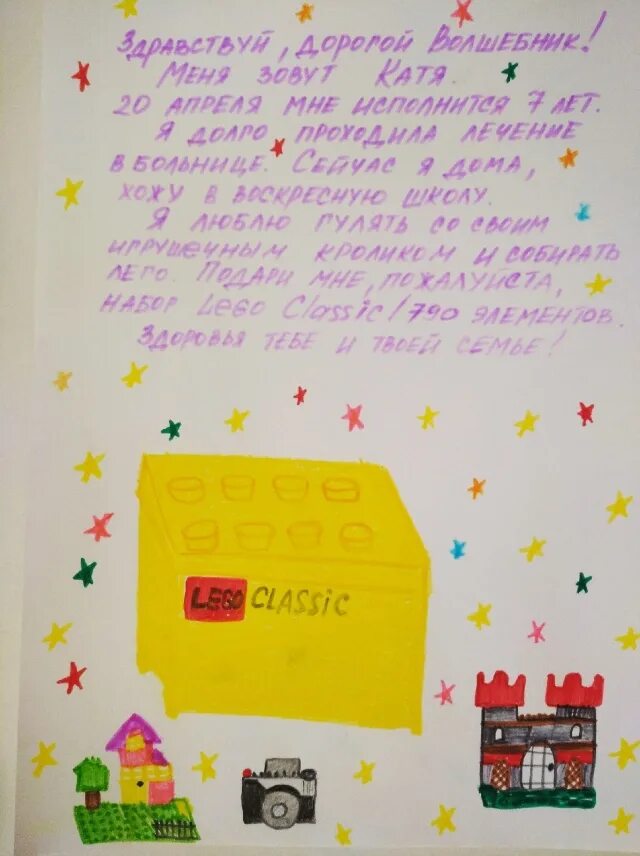 Здравствуй, дорогой Волшебник!
Меня зовут Катя.
20 апреля мне исполнится 7 лет.
Я долго проходила лечение
в больнице. Сейчас я дома,
хожу в воскресную школу.
Я люблю гулять со своим
игрушечным кроликом и собирать
лего. Подари мне, пожалуйста,
набор Lego Classic/790 элементов.
Здоровья тебе и твоей семье!
LEGO CLASSIC